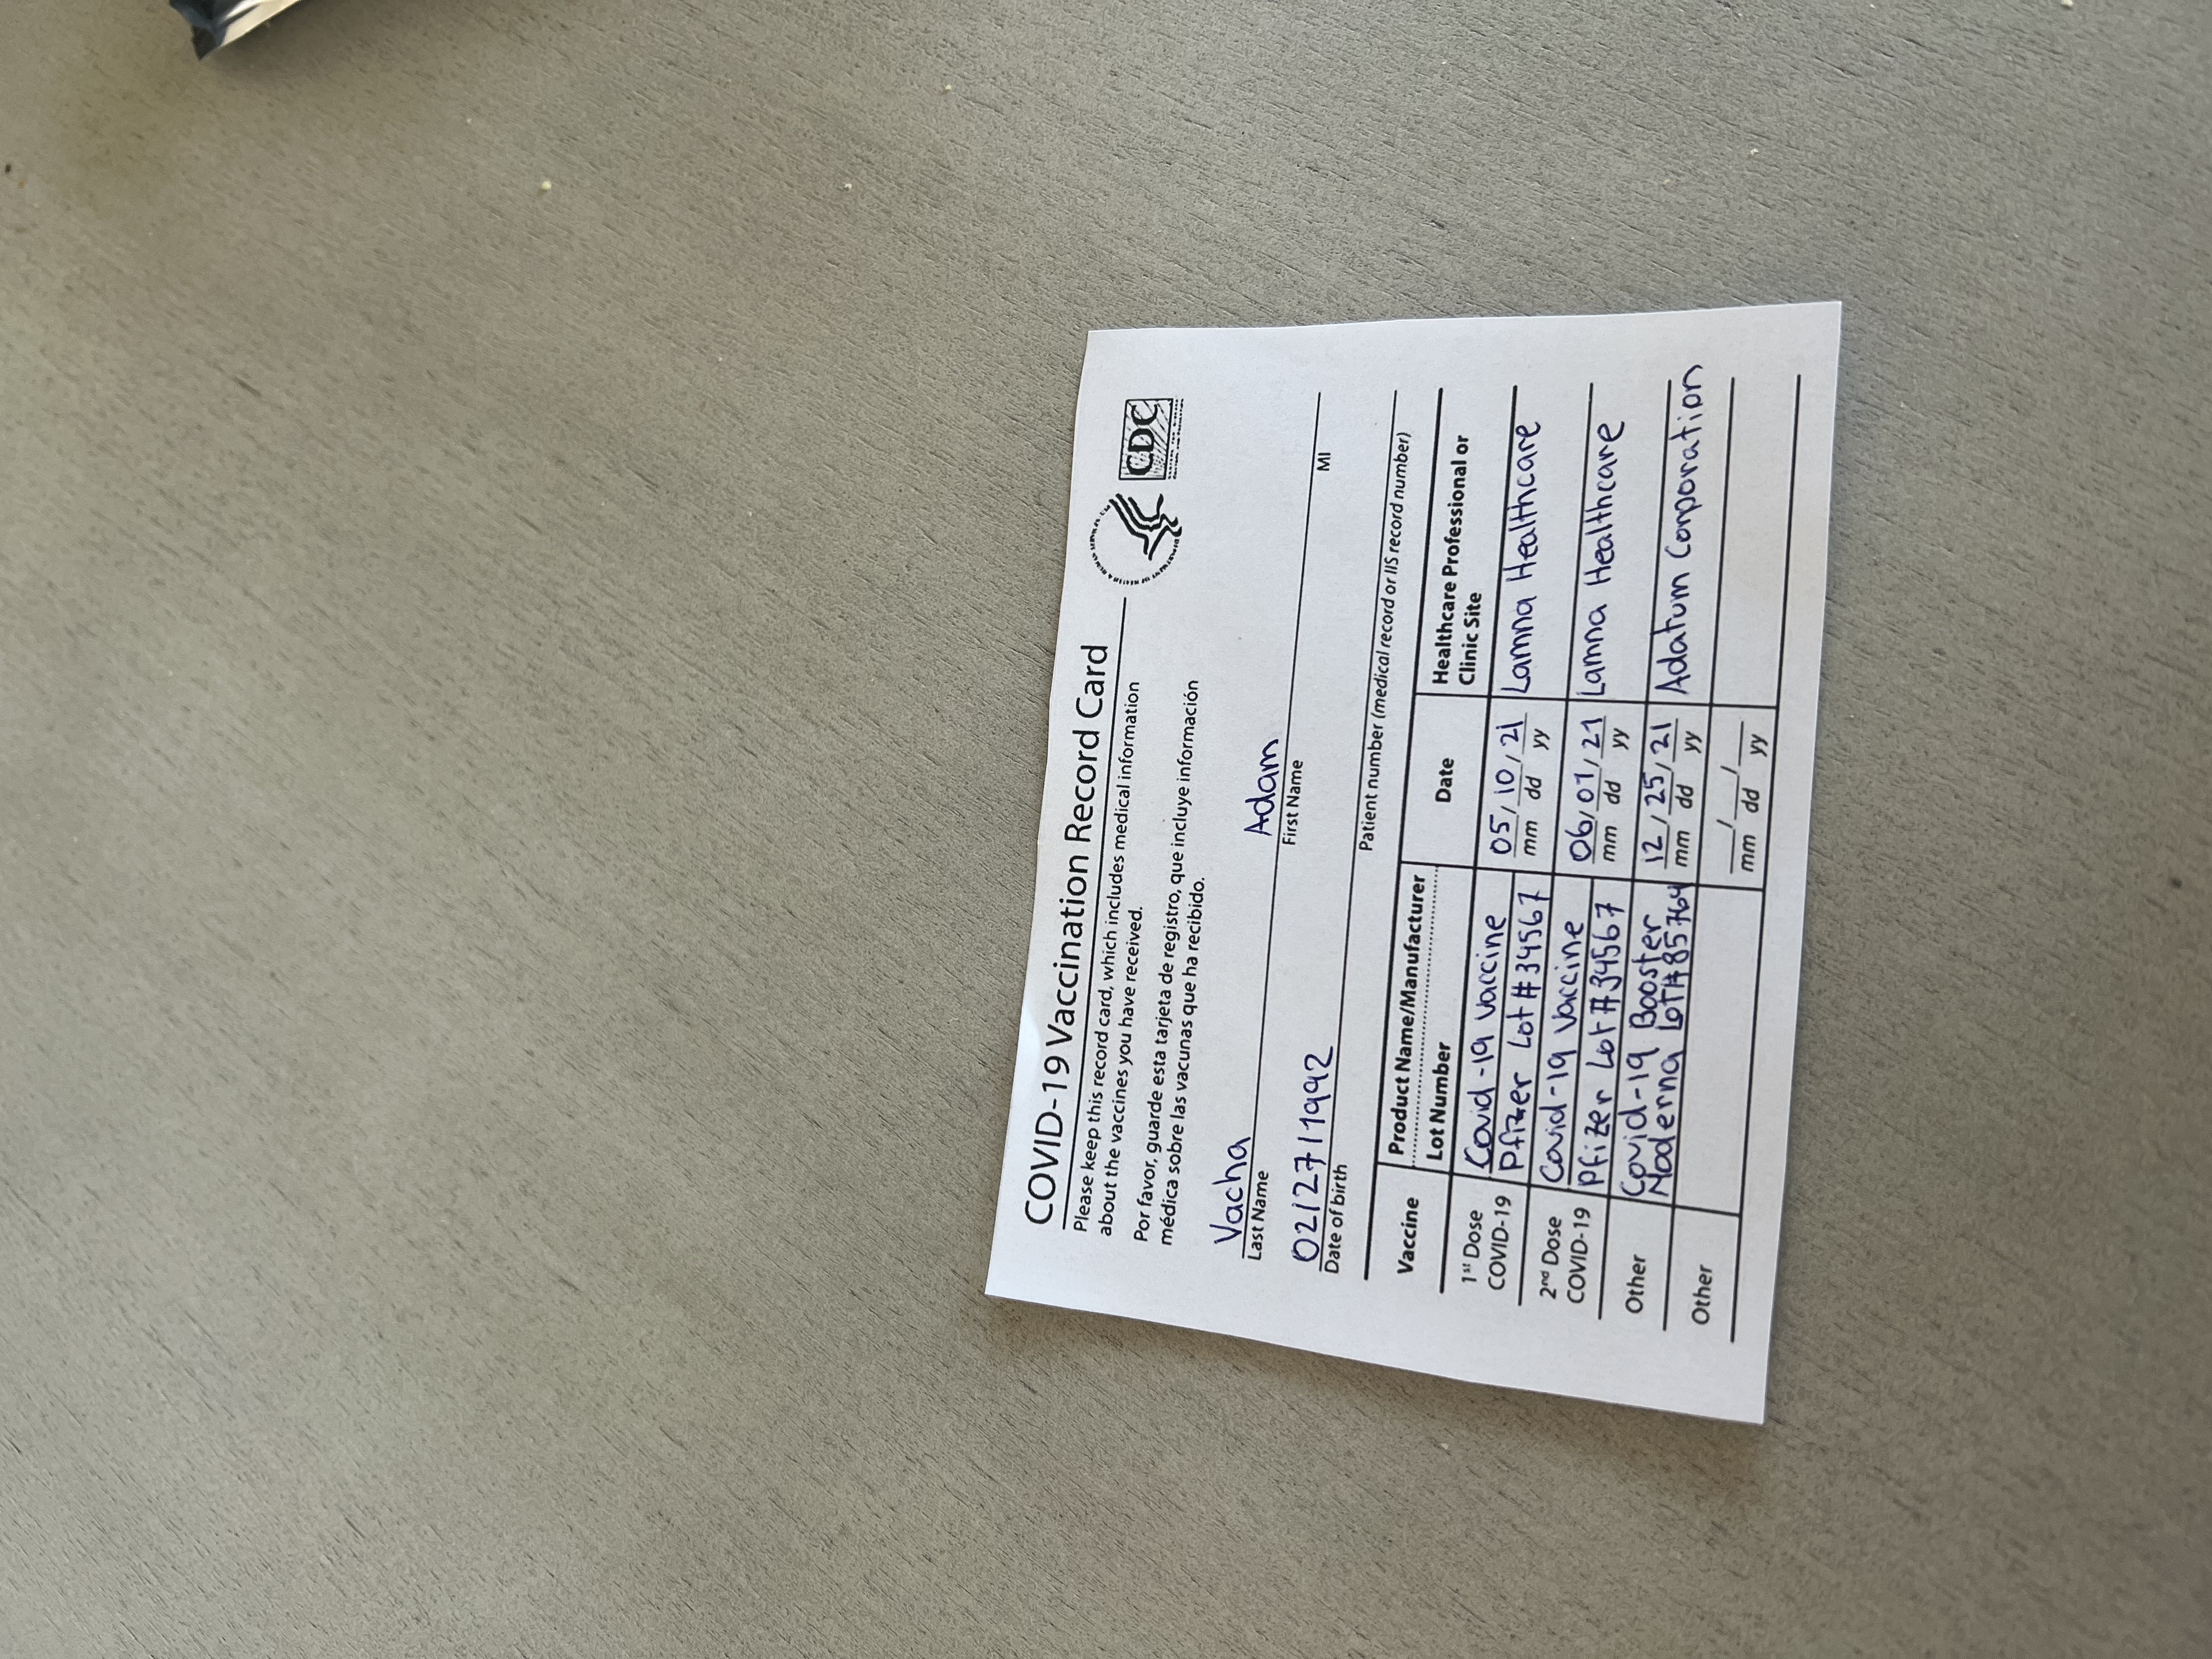 COVID-19 Vaccination Record Card
Please keep this record card, which includes medical information
about the vaccines you have received.
Por favor, guarde esta tarjeta de registro, que incluye información
médica sobre las vacunas que ha recibido.
CDC
Vacha Adam
Last Name First Name MI
02/27/1992
Date of birth Patient number (medical record or IIS record number)
Vaccine
Product Name/Manufacturer
Lot Number
Date
Healthcare Professional or
Clinic Site
1st Dose
COVID-19
Covid-19 vaccine
Pfizer Lot #34567
05/10/21
mm dd yy
Lamna Healthcare
2nd Dose
COVID-19
Covid-19 Vaccine
Pfizer Lot #34567
06/01/21
mm dd yy
Lamna Healthcare
Other
Covid-19 Booster
Moderna Lot#85764
12/25/21
mm dd yy
Adatum Corporation
Other
__/__/__
mm dd yy